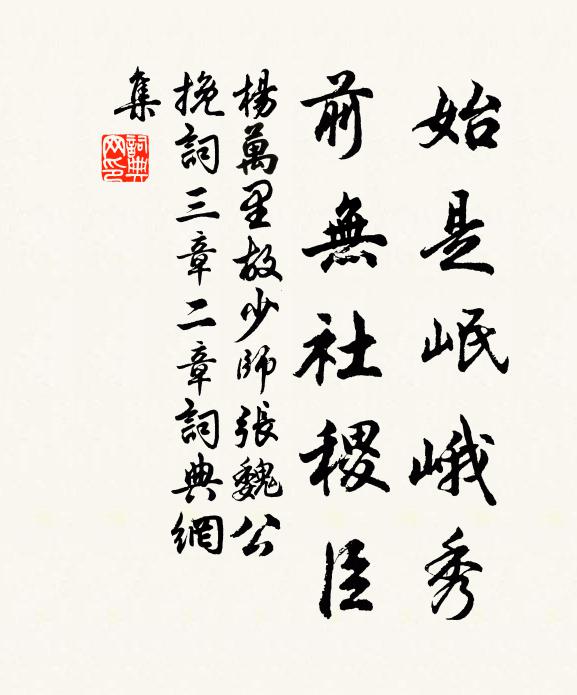 始是岷峨秀
前無社稷臣
楊萬里故少師張魏公
挽詞三章二章詞典網
集
詞典
网印